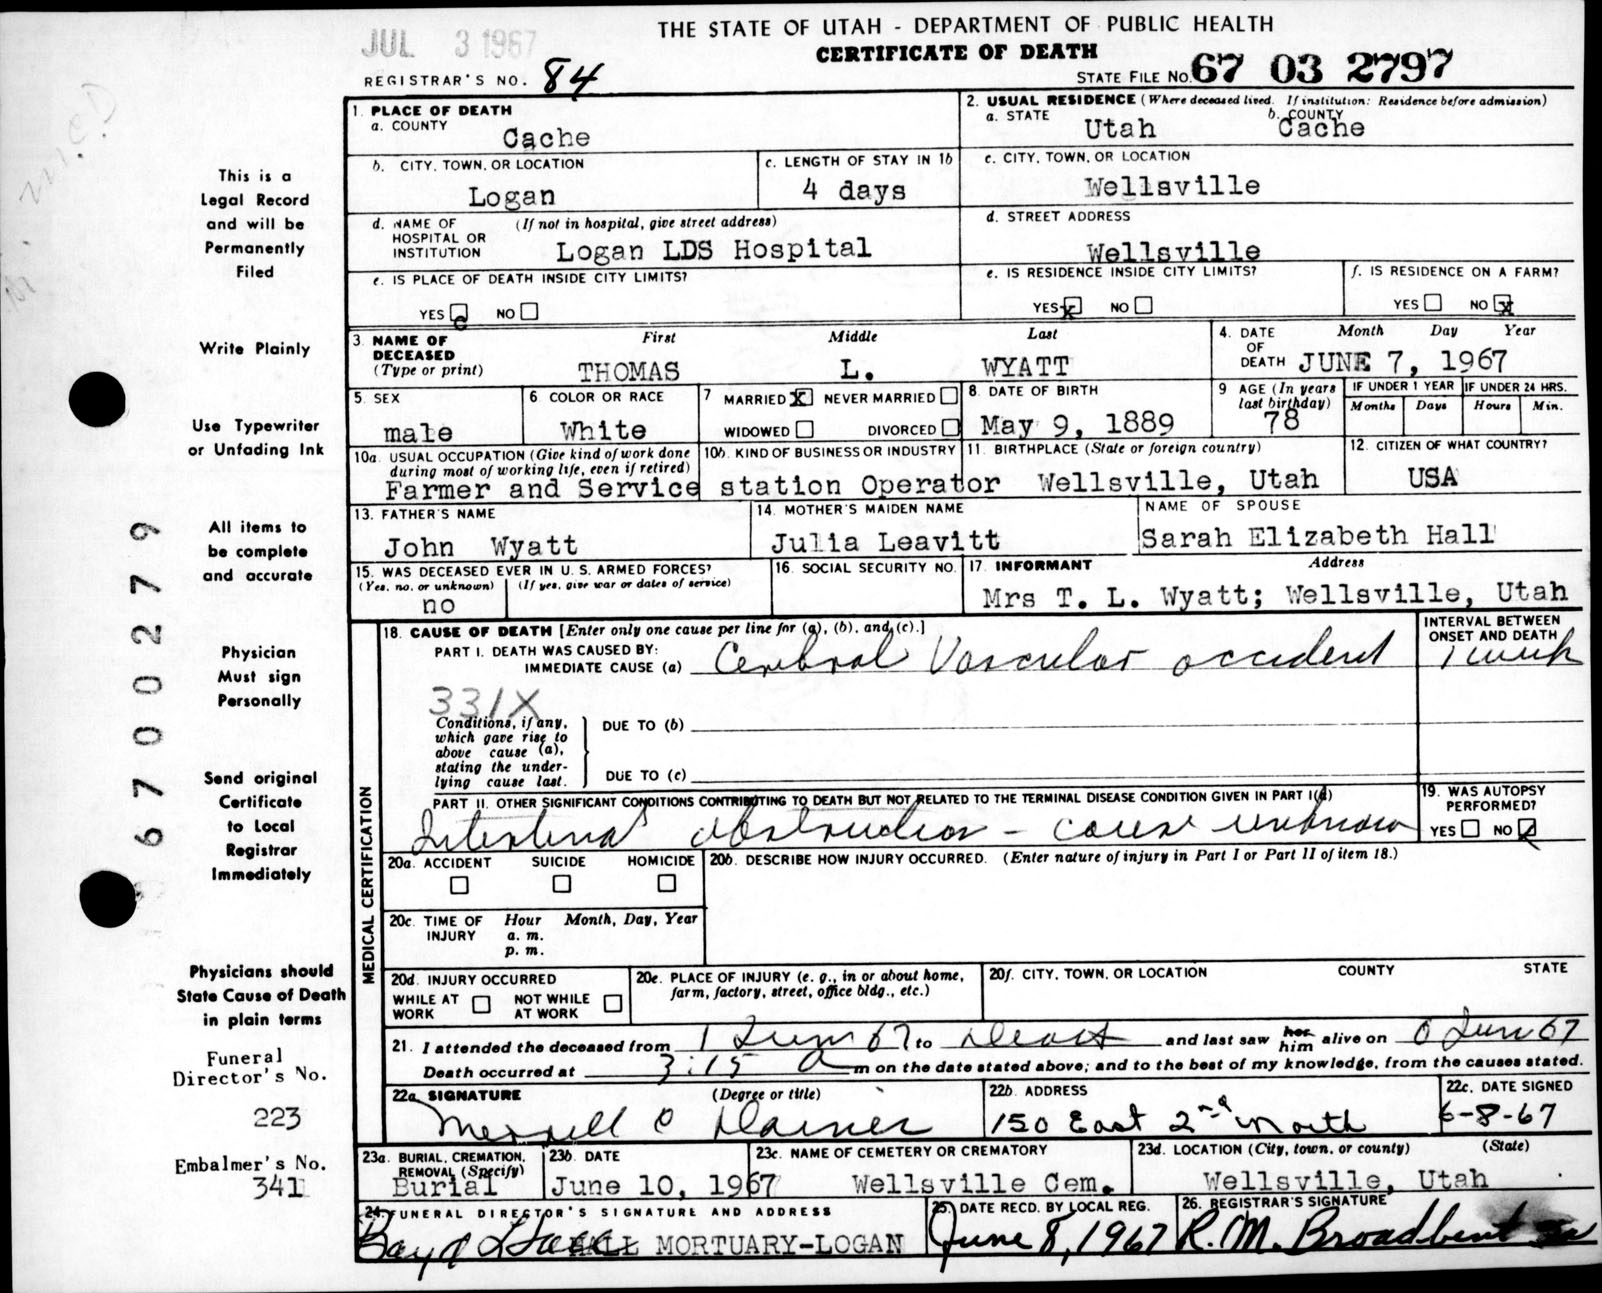 THE STATE OF UTAH - DEPARTMENT OF PUBLIC HEALTH
JUL 3 1967
CERTIFICATE OF DEATH
REGISTRAR'S NO. 84
STATE FILE NO. 67 03 2797
1. PLACE OF DEATH
a. COUNTY
Cache
2. USUAL RESIDENCE (Where deceased lived. If institution: Residence before admission)
a. STATE b. COUNTY
Utah Cache
b. CITY, TOWN, OR LOCATION
Logan
c. LENGTH OF STAY IN 1b
4 days
c. CITY, TOWN, OR LOCATION
Wellsville
d. NAME OF HOSPITAL OR INSTITUTION (If not in hospital, give street address)
Logan LDS Hospital
d. STREET ADDRESS
Wellsville
e. IS PLACE OF DEATH INSIDE CITY LIMITS?
YES NO
e. IS RESIDENCE INSIDE CITY LIMITS?
YES x NO
f. IS RESIDENCE ON A FARM?
YES NO x
3. NAME OF DECEASED (Type or print)
First Middle Last
THOMAS L. WYATT
4. DATE OF DEATH
Month Day Year
JUNE 7, 1967
5. SEX
male
6 COLOR OR RACE
White
7 MARRIED x NEVER MARRIED
WIDOWED DIVORCED
8. DATE OF BIRTH
May 9, 1889
9 AGE (In years last birthday)
78
IF UNDER 1 YEAR
Months Days
IF UNDER 24 HRS.
Hours Min.
10a. USUAL OCCUPATION (Give kind of work done during most of working life, even if retired)
10b. KIND OF BUSINESS OR INDUSTRY
Farmer and Service station Operator
11. BIRTHPLACE (State or foreign country)
Wellsville, Utah
12. CITIZEN OF WHAT COUNTRY?
USA
13. FATHER'S NAME
John Wyatt
14. MOTHER'S MAIDEN NAME
Julia Leavitt
NAME OF SPOUSE
Sarah Elizabeth Hall
15. WAS DECEASED EVER IN U. S. ARMED FORCES?
(Yes, no, or unknown) (If yes, give war or dates of service)
no
16. SOCIAL SECURITY NO.
17. INFORMANT Address
Mrs T. L. Wyatt; Wellsville, Utah
MEDICAL CERTIFICATION
18. CAUSE OF DEATH [Enter only one cause per line for (a), (b), and (c).]
INTERVAL BETWEEN ONSET AND DEATH
PART I. DEATH WAS CAUSED BY:
IMMEDIATE CAUSE (a) Cerebral Vascular accident
1 week
331X
Conditions, if any, which gave rise to above cause (a), stating the underlying cause last.
DUE TO (b)
DUE TO (c)
PART II. OTHER SIGNIFICANT CONDITIONS CONTRIBUTING TO DEATH BUT NOT RELATED TO THE TERMINAL DISEASE CONDITION GIVEN IN PART I(a)
Intestinal obstruction - cause unknown
19. WAS AUTOPSY PERFORMED?
YES NO x
20a. ACCIDENT SUICIDE HOMICIDE
20b. DESCRIBE HOW INJURY OCCURRED. (Enter nature of injury in Part I or Part II of item 18.)
20c. TIME OF INJURY
Hour Month, Day, Year
a. m.
p. m.
20d. INJURY OCCURRED
WHILE AT WORK NOT WHILE AT WORK
20e. PLACE OF INJURY (e. g., in or about home, farm, factory, street, office bldg., etc.)
20f. CITY, TOWN, OR LOCATION COUNTY STATE
21. I attended the deceased from 1 June 67 to Death and last saw her him alive on 6 June 67
Death occurred at 3:15 a m on the date stated above; and to the best of my knowledge, from the causes stated.
22a. SIGNATURE (Degree or title)
Merrill C Daines
22b. ADDRESS
150 East 2nd North
22c. DATE SIGNED
6-8-67
23a. BURIAL, CREMATION, REMOVAL (Specify)
Burial
23b. DATE
June 10, 1967
23c. NAME OF CEMETERY OR CREMATORY
Wellsville Cem.
23d. LOCATION (City, town, or county) (State)
Wellsville, Utah
24. FUNERAL DIRECTOR'S SIGNATURE AND ADDRESS
HALL MORTUARY-LOGAN
25. DATE RECD. BY LOCAL REG.
June 8, 1967
26. REGISTRAR'S SIGNATURE
R. M. Broadbent
This is a
Legal Record
and will be
Permanently
Filed
Write Plainly
Use Typewriter
or Unfading Ink
All items to
be complete
and accurate
Physician
Must sign
Personally
Send original
Certificate
to Local
Registrar
Immediately
Physicians should
State Cause of Death
in plain terms
Funeral
Director's No.
223
Embalmer's No.
341
6700279